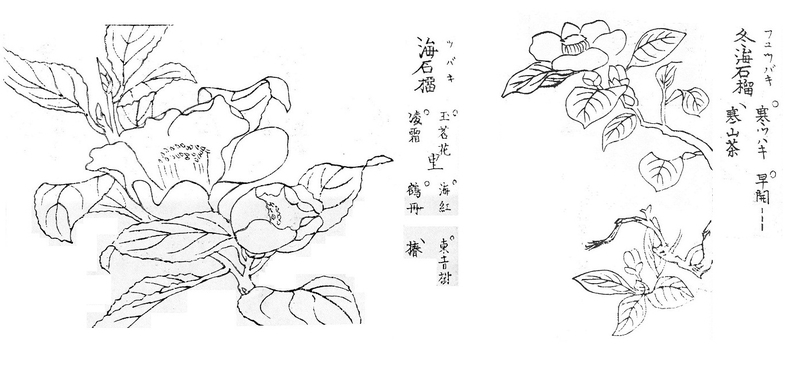 フユツバキ
冬海石榴
寒ツバキ 早開
寒山茶
ツバキ
海石榴
玉茗花 里 海紅 東音樹
凌霜 鶴丹 椿